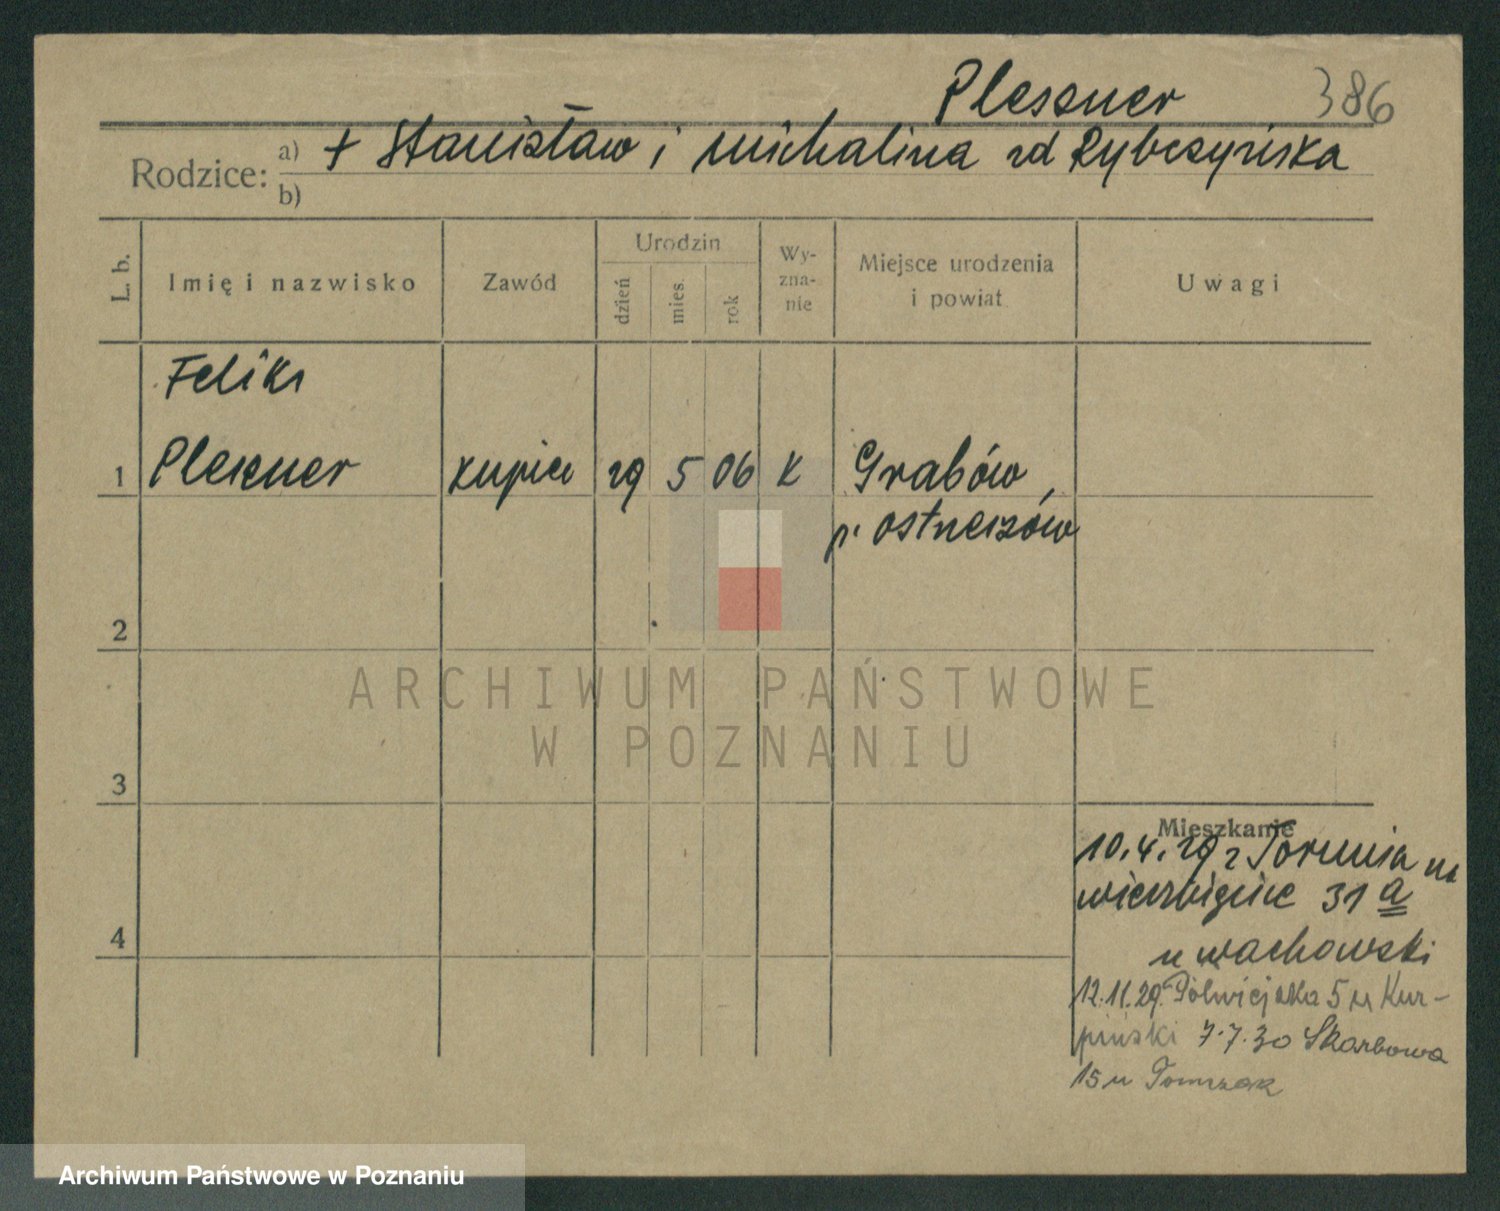 Plesener 386
Rodzice: a) + Stanisław i Michalina zd Rybczyńska
b)
L. b. Imię i nazwisko Zawód Urodzin dzień mies. rok Wy-zna-nie Miejsce urodzenia i powiat Uwagi
Feliks
1 Plesener kupiec 29 5 06 K Grabów,
p. Ostrzeszów
2
ARCHIWUM PAŃSTWOWE
W POZNANIU
3
Mieszkanie
10.4.29 z Torunia na
Wierzbięcic 31 a
4
u Wachowski
12.11.29. Półwiejska 5 u Kur-
piński 7.7.30 Skarbowa
15 u Tomczak
Archiwum Państwowe w Poznaniu